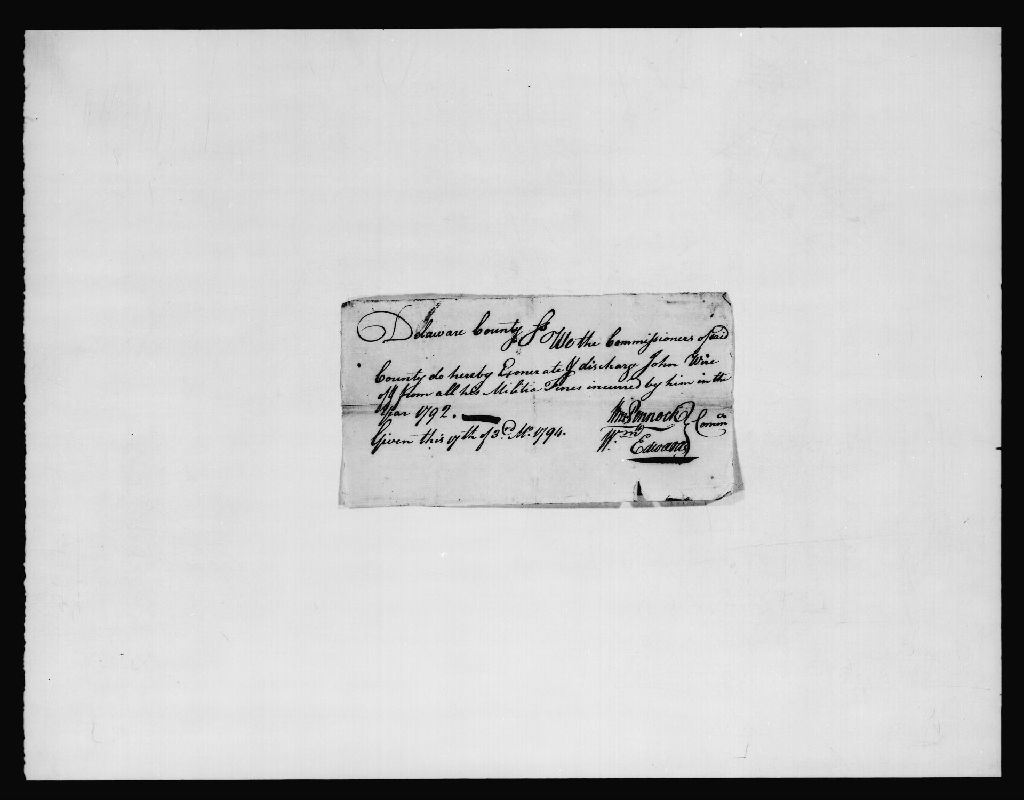 Delaware County Ss We the Commissioners of said
County do hereby Exonerate & discharg John Wire
off from all his Militia Fines incurred by him in the
Year 1792.
Given this 17th of 3rd Mo. 1794.
Wm Pennock
Wm Edwards
Comm